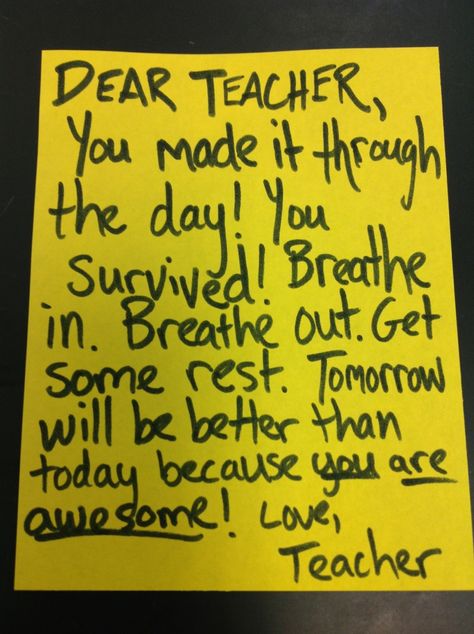 DEAR TEACHER,
You made it through
the day! You
Survived! Breathe
in. Breathe out. Get
some rest. Tomorrow
will be better than
today because you are
awesome! Love,
Teacher